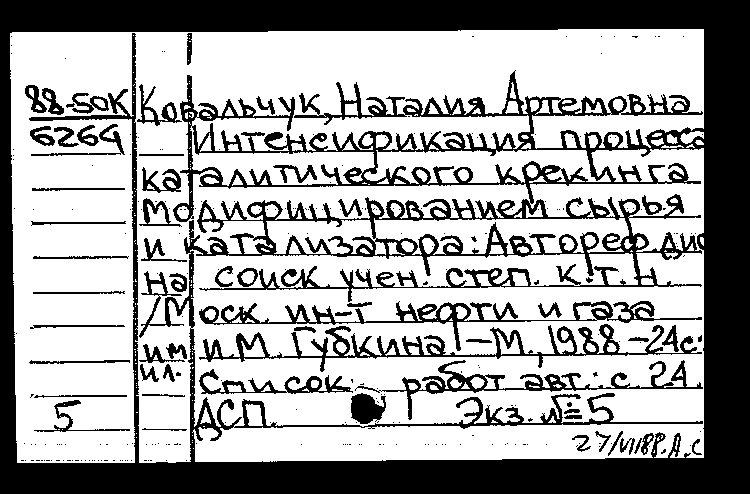 88-50К Ковальчук, Наталия Артемовна
6264 Интенсификация процесса
каталитического крекинга
модифицированием сырья
и катализатора: Автореф. дис
на соиск. учен. степ. к.т.н.
/Моск. ин-т нефти и газа
им И.М. Губкина. – М., 1988 – 24с:
ил. Список работ авт.: с 24.
5 ДСП. Экз. №5
27/VI88. А.С